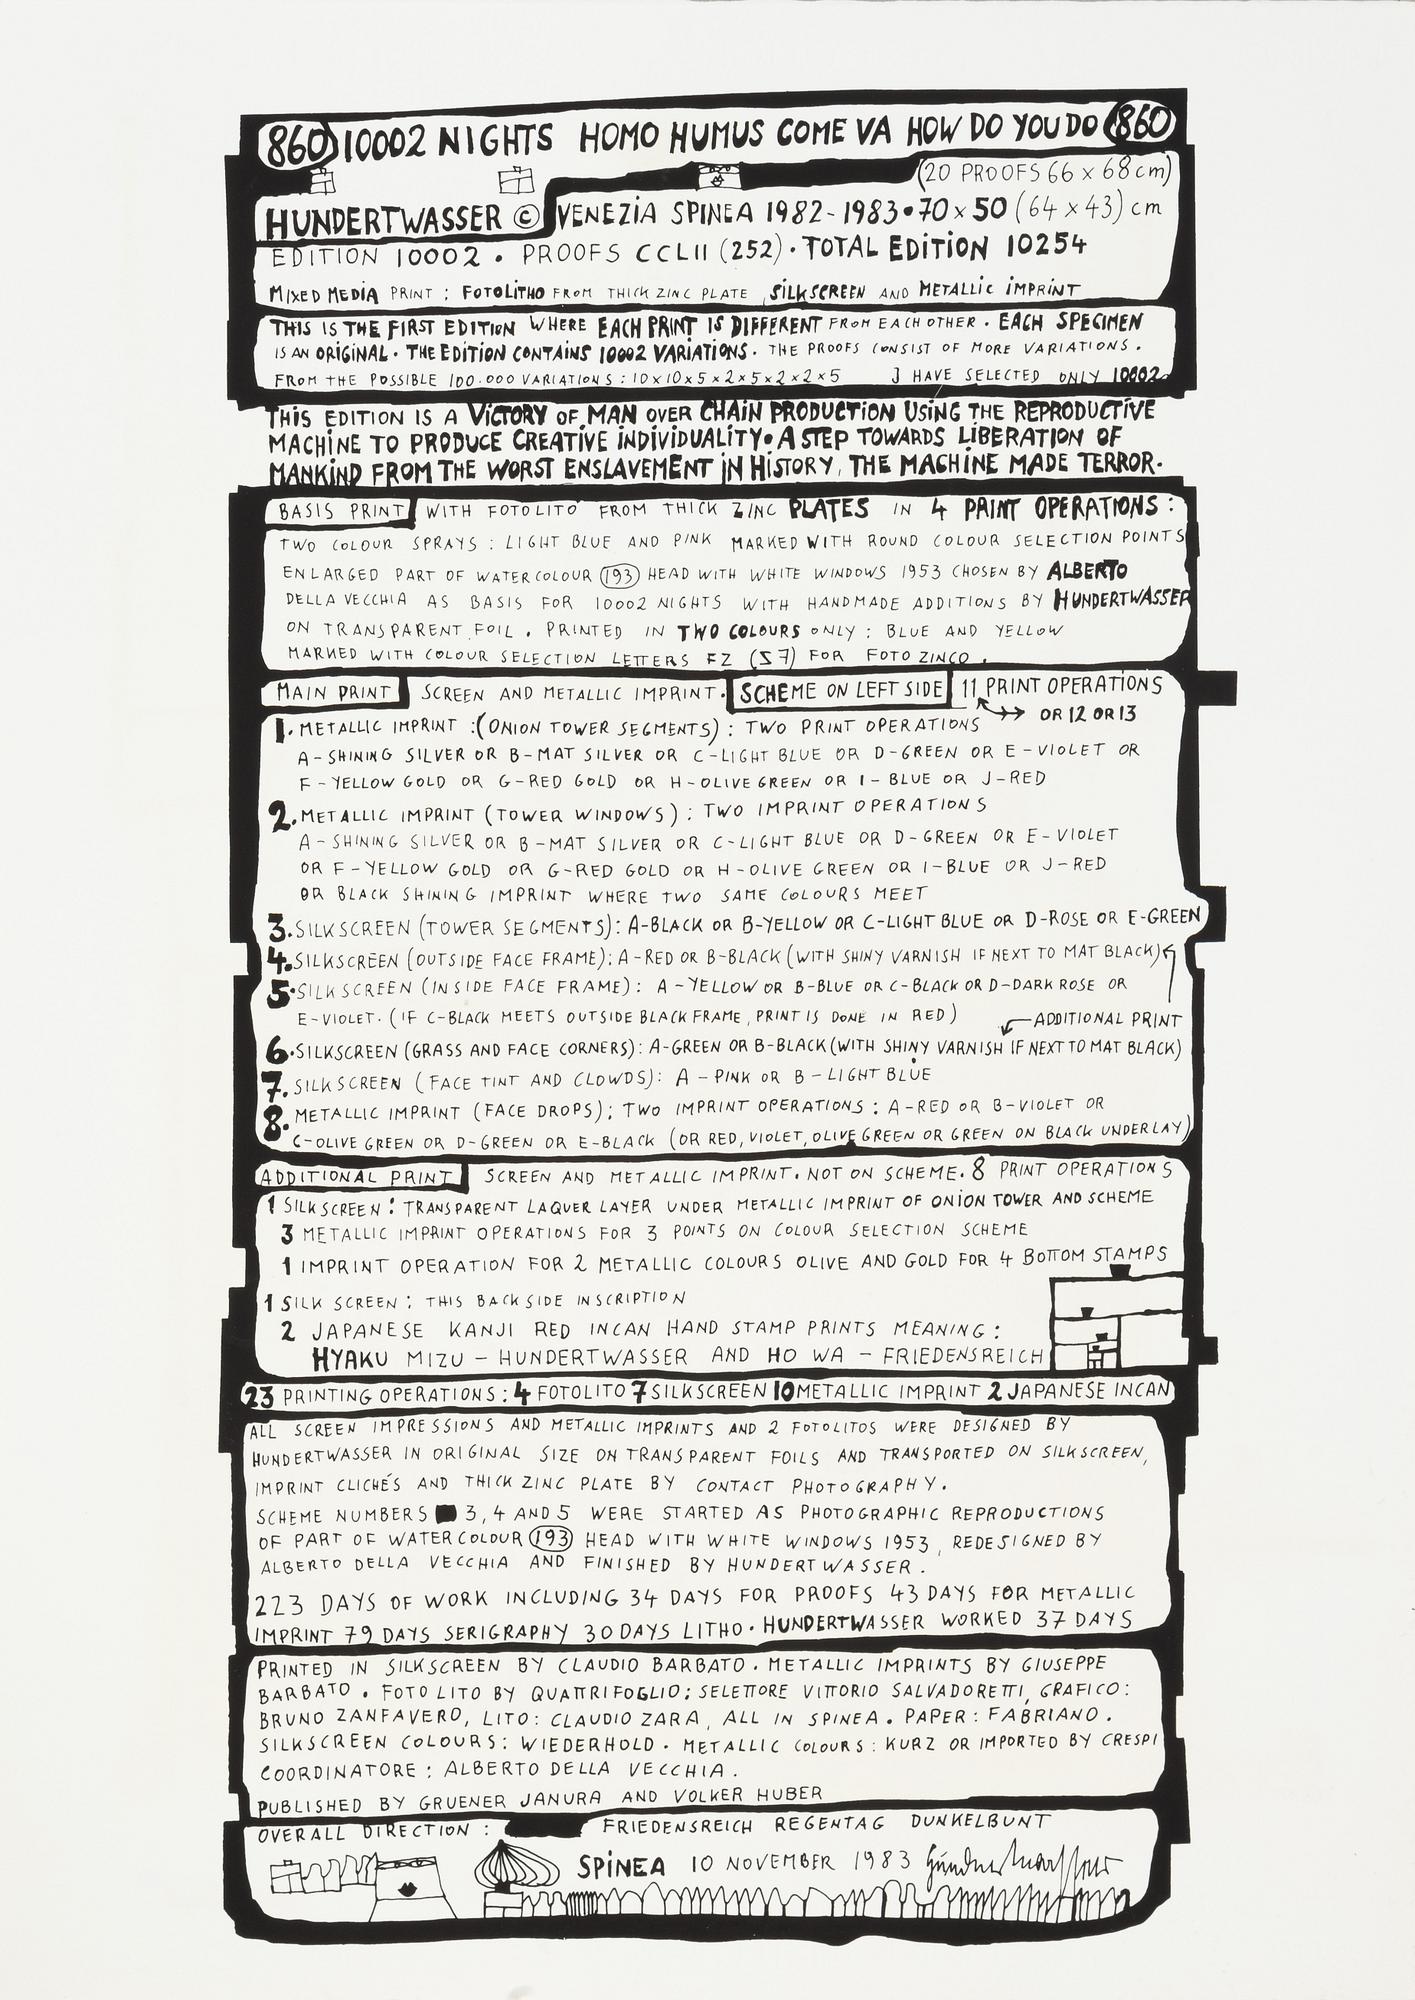 860 10002 NIGHTS HOMO HUMUS COME VA HOW DO YOU DO 860
(20 PROOFS 66 x 68 cm)
HUNDERTWASSER © VENEZIA SPINEA 1982-1983 • 70 x 50 (64 x 43) cm
EDITION 10002 • PROOFS CCLII (252) • TOTAL EDITION 10254
MIXED MEDIA PRINT : FOTOLITHO FROM THICK ZINC PLATE, SILKSCREEN AND METALLIC IMPRINT
THIS IS THE FIRST EDITION WHERE EACH PRINT IS DIFFERENT FROM EACH OTHER • EACH SPECIMEN
IS AN ORIGINAL • THE EDITION CONTAINS 10002 VARIATIONS • THE PROOFS CONSIST OF MORE VARIATIONS.
FROM THE POSSIBLE 100.000 VARIATIONS : 10x10x5x2x5x2x2x5 J HAVE SELECTED ONLY 10002
THIS EDITION IS A VICTORY OF MAN OVER CHAIN PRODUCTION USING THE REPRODUCTIVE
MACHINE TO PRODUCE CREATIVE INDIVIDUALITY • A STEP TOWARDS LIBERATION OF
MANKIND FROM THE WORST ENSLAVEMENT IN HISTORY, THE MACHINE MADE TERROR.
BASIS PRINT WITH FOTOLITO FROM THICK ZINC PLATES IN 4 PRINT OPERATIONS :
TWO COLOUR SPRAYS : LIGHT BLUE AND PINK MARKED WITH ROUND COLOUR SELECTION POINTS
ENLARGED PART OF WATERCOLOUR 193 HEAD WITH WHITE WINDOWS 1953 CHOSEN BY ALBERTO
DELLA VECCHIA AS BASIS FOR 10002 NIGHTS WITH HANDMADE ADDITIONS BY HUNDERTWASSER
ON TRANSPARENT FOIL . PRINTED IN TWO COLOURS ONLY : BLUE AND YELLOW
MARKED WITH COLOUR SELECTION LETTERS FZ (S7) FOR FOTO ZINCO .
MAIN PRINT SCREEN AND METALLIC IMPRINT. SCHEME ON LEFT SIDE 11 PRINT OPERATIONS
OR 12 OR 13
1. METALLIC IMPRINT : (ONION TOWER SEGMENTS) : TWO PRINT OPERATIONS
A - SHINING SILVER OR B - MAT SILVER OR C - LIGHT BLUE OR D - GREEN OR E - VIOLET OR
F - YELLOW GOLD OR G - RED GOLD OR H - OLIVE GREEN OR I - BLUE OR J - RED
2. METALLIC IMPRINT (TOWER WINDOWS) : TWO IMPRINT OPERATIONS
A - SHINING SILVER OR B - MAT SILVER OR C - LIGHT BLUE OR D - GREEN OR E - VIOLET
OR F - YELLOW GOLD OR G - RED GOLD OR H - OLIVE GREEN OR I - BLUE OR J - RED
OR BLACK SHINING IMPRINT WHERE TWO SAME COLOURS MEET
3. SILKSCREEN (TOWER SEGMENTS) : A-BLACK OR B-YELLOW OR C-LIGHT BLUE OR D-ROSE OR E-GREEN
4. SILKSCREEN (OUTSIDE FACE FRAME) : A-RED OR B-BLACK (WITH SHINY VARNISH IF NEXT TO MAT BLACK)
5. SILKSCREEN (INSIDE FACE FRAME) : A - YELLOW OR B-BLUE OR C-BLACK OR D-DARK ROSE OR
E-VIOLET. (IF C-BLACK MEETS OUTSIDE BLACK FRAME, PRINT IS DONE IN RED)
ADDITIONAL PRINT
6. SILKSCREEN (GRASS AND FACE CORNERS) : A-GREEN OR B-BLACK (WITH SHINY VARNISH IF NEXT TO MAT BLACK)
7. SILKSCREEN (FACE TINT AND CLOWDS) : A - PINK OR B - LIGHT BLUE
8. METALLIC IMPRINT (FACE DROPS) ; TWO IMPRINT OPERATIONS : A-RED OR B-VIOLET OR
C-OLIVE GREEN OR D-GREEN OR E-BLACK (OR RED, VIOLET, OLIVE GREEN OR GREEN ON BLACK UNDERLAY)
ADDITIONAL PRINT SCREEN AND METALLIC IMPRINT. NOT ON SCHEME. 8 PRINT OPERATIONS
1 SILKSCREEN : TRANSPARENT LAQUER LAYER UNDER METALLIC IMPRINT OF ONION TOWER AND SCHEME
3 METALLIC IMPRINT OPERATIONS FOR 3 POINTS ON COLOUR SELECTION SCHEME
1 IMPRINT OPERATION FOR 2 METALLIC COLOURS OLIVE AND GOLD FOR 4 BOTTOM STAMPS
1 SILK SCREEN : THIS BACKSIDE INSCRIPTION
2 JAPANESE KANJI RED INCAN HAND STAMP PRINTS MEANING :
HYAKU MIZU - HUNDERTWASSER AND HO WA - FRIEDENSREICH
23 PRINTING OPERATIONS : 4 FOTOLITO 7 SILKSCREEN 10 METALLIC IMPRINT 2 JAPANESE INCAN
ALL SCREEN IMPRESSIONS AND METALLIC IMPRINTS AND 2 FOTOLITOS WERE DESIGNED BY
HUNDERTWASSER IN ORIGINAL SIZE ON TRANSPARENT FOILS AND TRANSPORTED ON SILKSCREEN,
IMPRINT CLICHÉS AND THICK ZINC PLATE BY CONTACT PHOTOGRAPHY.
SCHEME NUMBERS 3, 4 AND 5 WERE STARTED AS PHOTOGRAPHIC REPRODUCTIONS
OF PART OF WATERCOLOUR 193 HEAD WITH WHITE WINDOWS 1953, REDESIGNED BY
ALBERTO DELLA VECCHIA AND FINISHED BY HUNDERTWASSER.
223 DAYS OF WORK INCLUDING 34 DAYS FOR PROOFS 43 DAYS FOR METALLIC
IMPRINT 79 DAYS SERIGRAPHY 30 DAYS LITHO • HUNDERTWASSER WORKED 37 DAYS
PRINTED IN SILKSCREEN BY CLAUDIO BARBATO. METALLIC IMPRINTS BY GIUSEPPE
BARBATO . FOTOLITO BY QUATTRIFOGLIO; SELETTORE VITTORIO SALVADORETTI, GRAFICO:
BRUNO ZANFAVERO, LITO: CLAUDIO ZARA, ALL IN SPINEA. PAPER: FABRIANO.
SILKSCREEN COLOURS: WIEDERHOLD. METALLIC COLOURS : KURZ OR IMPORTED BY CRESPI
COORDINATORE : ALBERTO DELLA VECCHIA.
PUBLISHED BY GRUENER JANURA AND VOLKER HUBER
OVERALL DIRECTION : FRIEDENSREICH REGENTAG DUNKELBUNT
SPINEA 10 NOVEMBER 1983 Hundertwasser